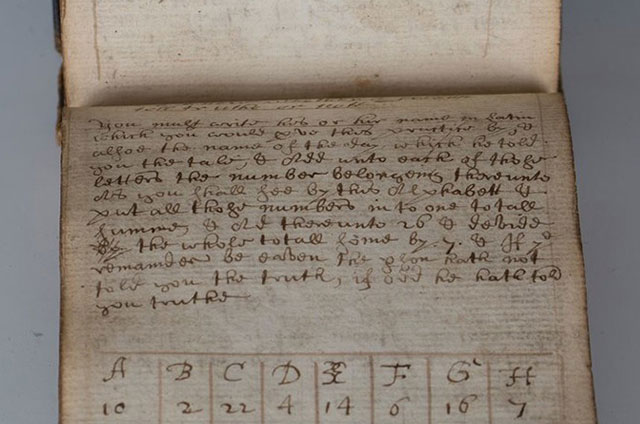 tell truthe or not
You must write his or hir name in Latin
which you would prove this practice by, &
allsoe the name of the day which he told
you the tale, & Add unto each of those
letters the number belonging thereunto
As you shall see by this Alphabett &
put all those numbers in to one totall
summe, & Ad thereunto 26 & devide
the whole totall some by .7. & If ye
remainder be eaven the pson hath not
told you the truth, if odd he hath told
you truthe
A B C D E F G H
10 2 22 4 14 6 16 7